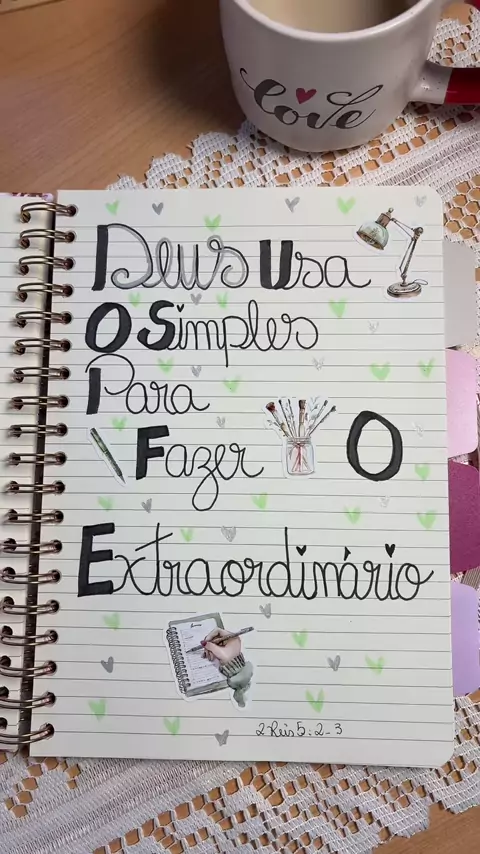 Love
Deus Usa
O Simples
Para
Fazer O
Extraordinário
2 Reis 5:2-3